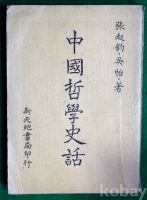 張起鈞・吳怡・著
中國哲學史話
新天地書局印行
kobay